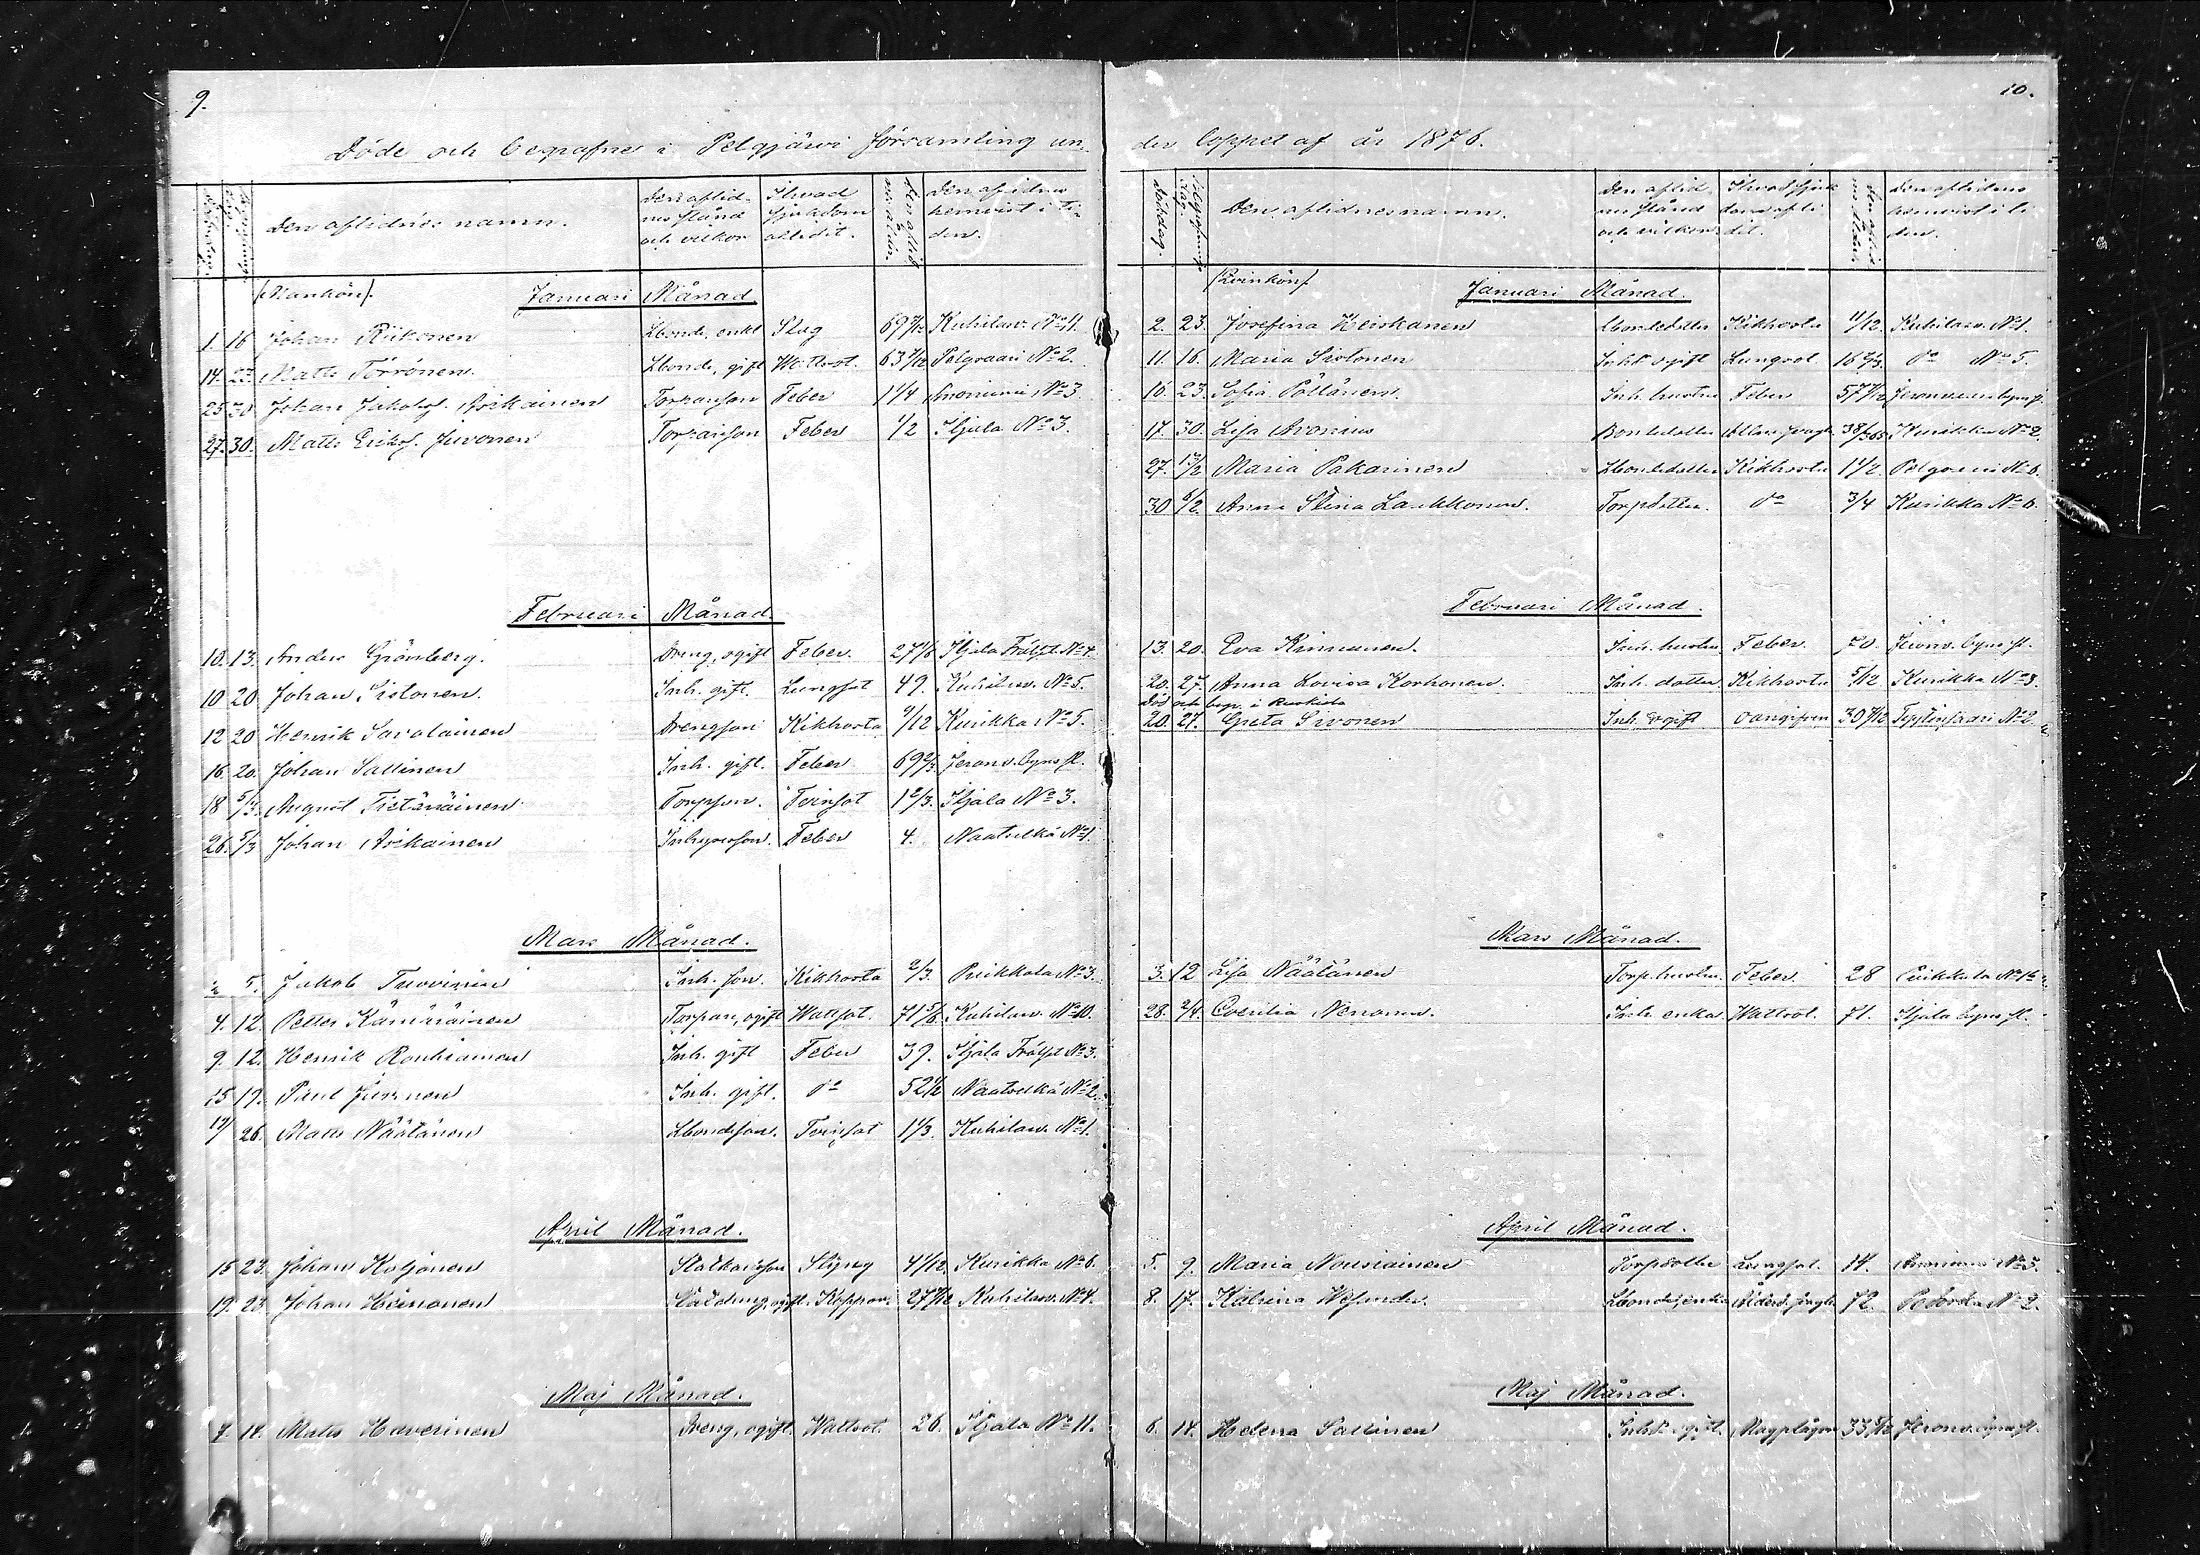 9.
Döde och begrafne i Pelgjärvi församling un-
Dödsdag.
Begrafnings dag.
Den aflidnes namn.
Den aflid-
nes stånd
och vilkor
Hvad
sjukdom
aflidit.
Den aflid
nes ålder.
Den aflidnes
hemvist i ti-
den.
(Mankön).
Januari Månad
1. 16 Johan Riikonen Lbonde, enkl Slag 69 Kuhilaw. No 11.
14. 23. Matts Törrönen Lbonde, gift Wattsot. 63 7/12 Pelgvaari No 2.
25 30 Johan Jakobs. Asikainen Torparson Feber 1 1/4 No 3
27. 30. Matts Eriks. Juvonen Torparson Feber 1/2 Itjala No 3.
Februari Månad
10. 13. Anders Grönberg. Dreng, ogift Feber. 27 Itjala Frälsst No 4.
10 20 Johan Sistonen. Inh. gift. Lungsot 49. Kuhilaw. No 5.
12 20 Henrik Savolainen Drengson Kikhosta 9/12 Kurikka No 5.
16. 20. Johan Sallinen Inh. gift. Feber 69 2/3 Jeronv. byns fl.
18 5/3. August Tietäväinen Torpson. Tvinsot 1 2/3. Itjala No 3.
26. 5/3 Johan Asikainen Inhyseson. Feber 4. Naatselkä No 1.
Mars Månad.
2 5. Jakob Tuovinen Inh. son. Kikhosta 2/3. Puikkola No 3.
4. 12. Petter Kämäräinen Torpare, ogift Wattsot. 71 5/6. Kuhilaw. No 10.
9. 12. Henrik Rouhiainen Inh. gift Feber 39. Itjala Frälsst No 3.
15 19. Paul Jussinen Inh. gift. do 52 1/2 Naatselkä No 2.
19/ 26. Matts Näätänen Lbondeson. Tvinsot 1 1/3. Kuhilaw. No 1.
April Månad.
15 23. Johan Koljonen Statkarlson Styng 4 1/12. Kurikka No 6.
19. 23. Johan Hiironen ogift. Koppor. 27 Kuhilaw. No 4.
Maj Månad.
7. 14. Matts Haverinen Dreng, ogift. Wattsot. 26. Itjala No 11.
10.
der loppet af år 1876.
Dödsdag.
Begrafnings dag.
Den aflidnes namn.
Den aflid-
nes stånd
och vilkor
Hvad sjuk
dom afli
dit.
Den aflid
nes ålder.
Den aflidnes
hemvist i ti
den.
(Qvinkön)
Januari Månad.
2. 23. Josefina Heiskanen Lbondedotter Kikhosta 11/12. Kuhilaw. No 1.
11. 16. Maria Sistonen Inh. ogift Lungsot. 16 do No 5.
16. 23. Sofia Pöllänen. Inh. hustru Feber 57 7/12 Jeronv. byns fl.
17. 30. Lisa Bondedotter 38/365 Kurikka No 2.
27. 12/2 Maria Pakarinen Lbondedotter Kikhosta 1 1/2. Pelgvaari No 6.
30 6/2. Anna Stina Laukkonen. Torpdotter. do 3/4 Kurikka No 6.
Februari Månad.
13. 20. Eva Kinnunen. Inh. hustru. Feber. 70. Jeronv. byns fl.
20. 27. Anna Lovisa Korhonen. Inh. dotter Kikhosta 5/12 Kurikka No 3.
Död och begr. i Ruskiala
20. 27. Greta Sivonen Inh. ogift oangifven 30 7/12 No 2.
Mars Månad.
3. 12 Lisa Näätänen Torp. hustru. Feber. 28 Puikkola No 16
28. 2/4. Coecilia Nenonen. Inh. enka. Wattsot. 71. Itjala byns fl.
April Månad.
5. 9. Maria Nousiainen Torpdotter Lungsot. 14. No 3.
8. 17. Katrina Wesander. Lbonde, enka Ålderd. 72. No 2.
Maj Månad.
6. 14. Helena Sallinen Inh. gift. Magplågor 33 Jeronv. byns fl.